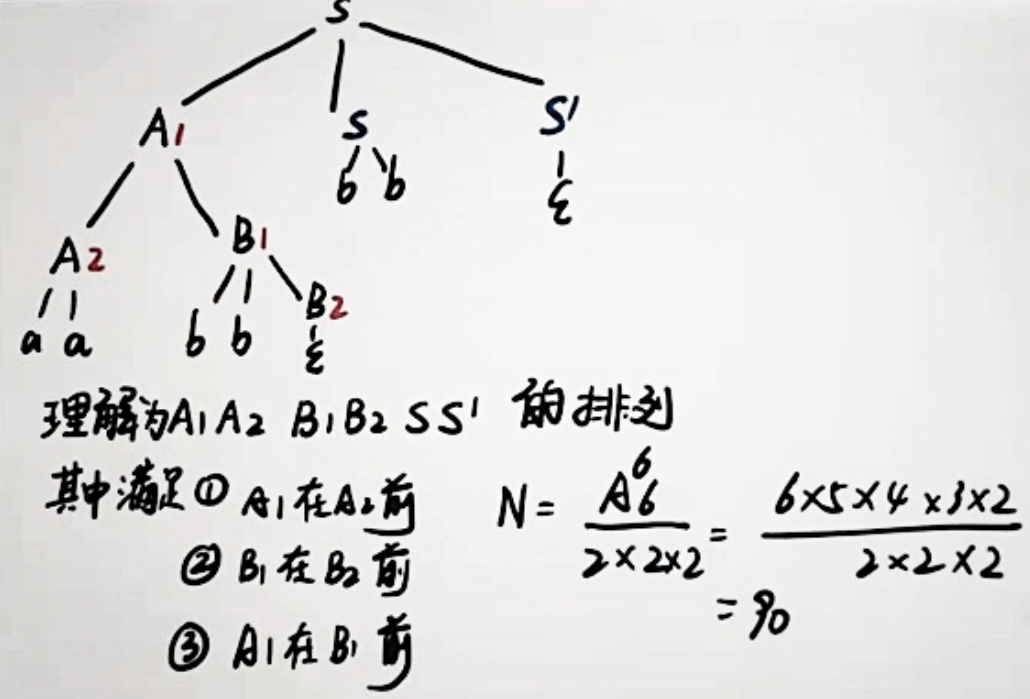 S
A1 S S'
b b ε
A2 B1
a a b b B2
ε
理解为A1A2 B1B2 SS' 的排列
其中满足① A1在A2前
② B1在B2前
③ A1在B1前
N= A⁶₆/2×2×2 = 6×5×4×3×2/2×2×2
=90